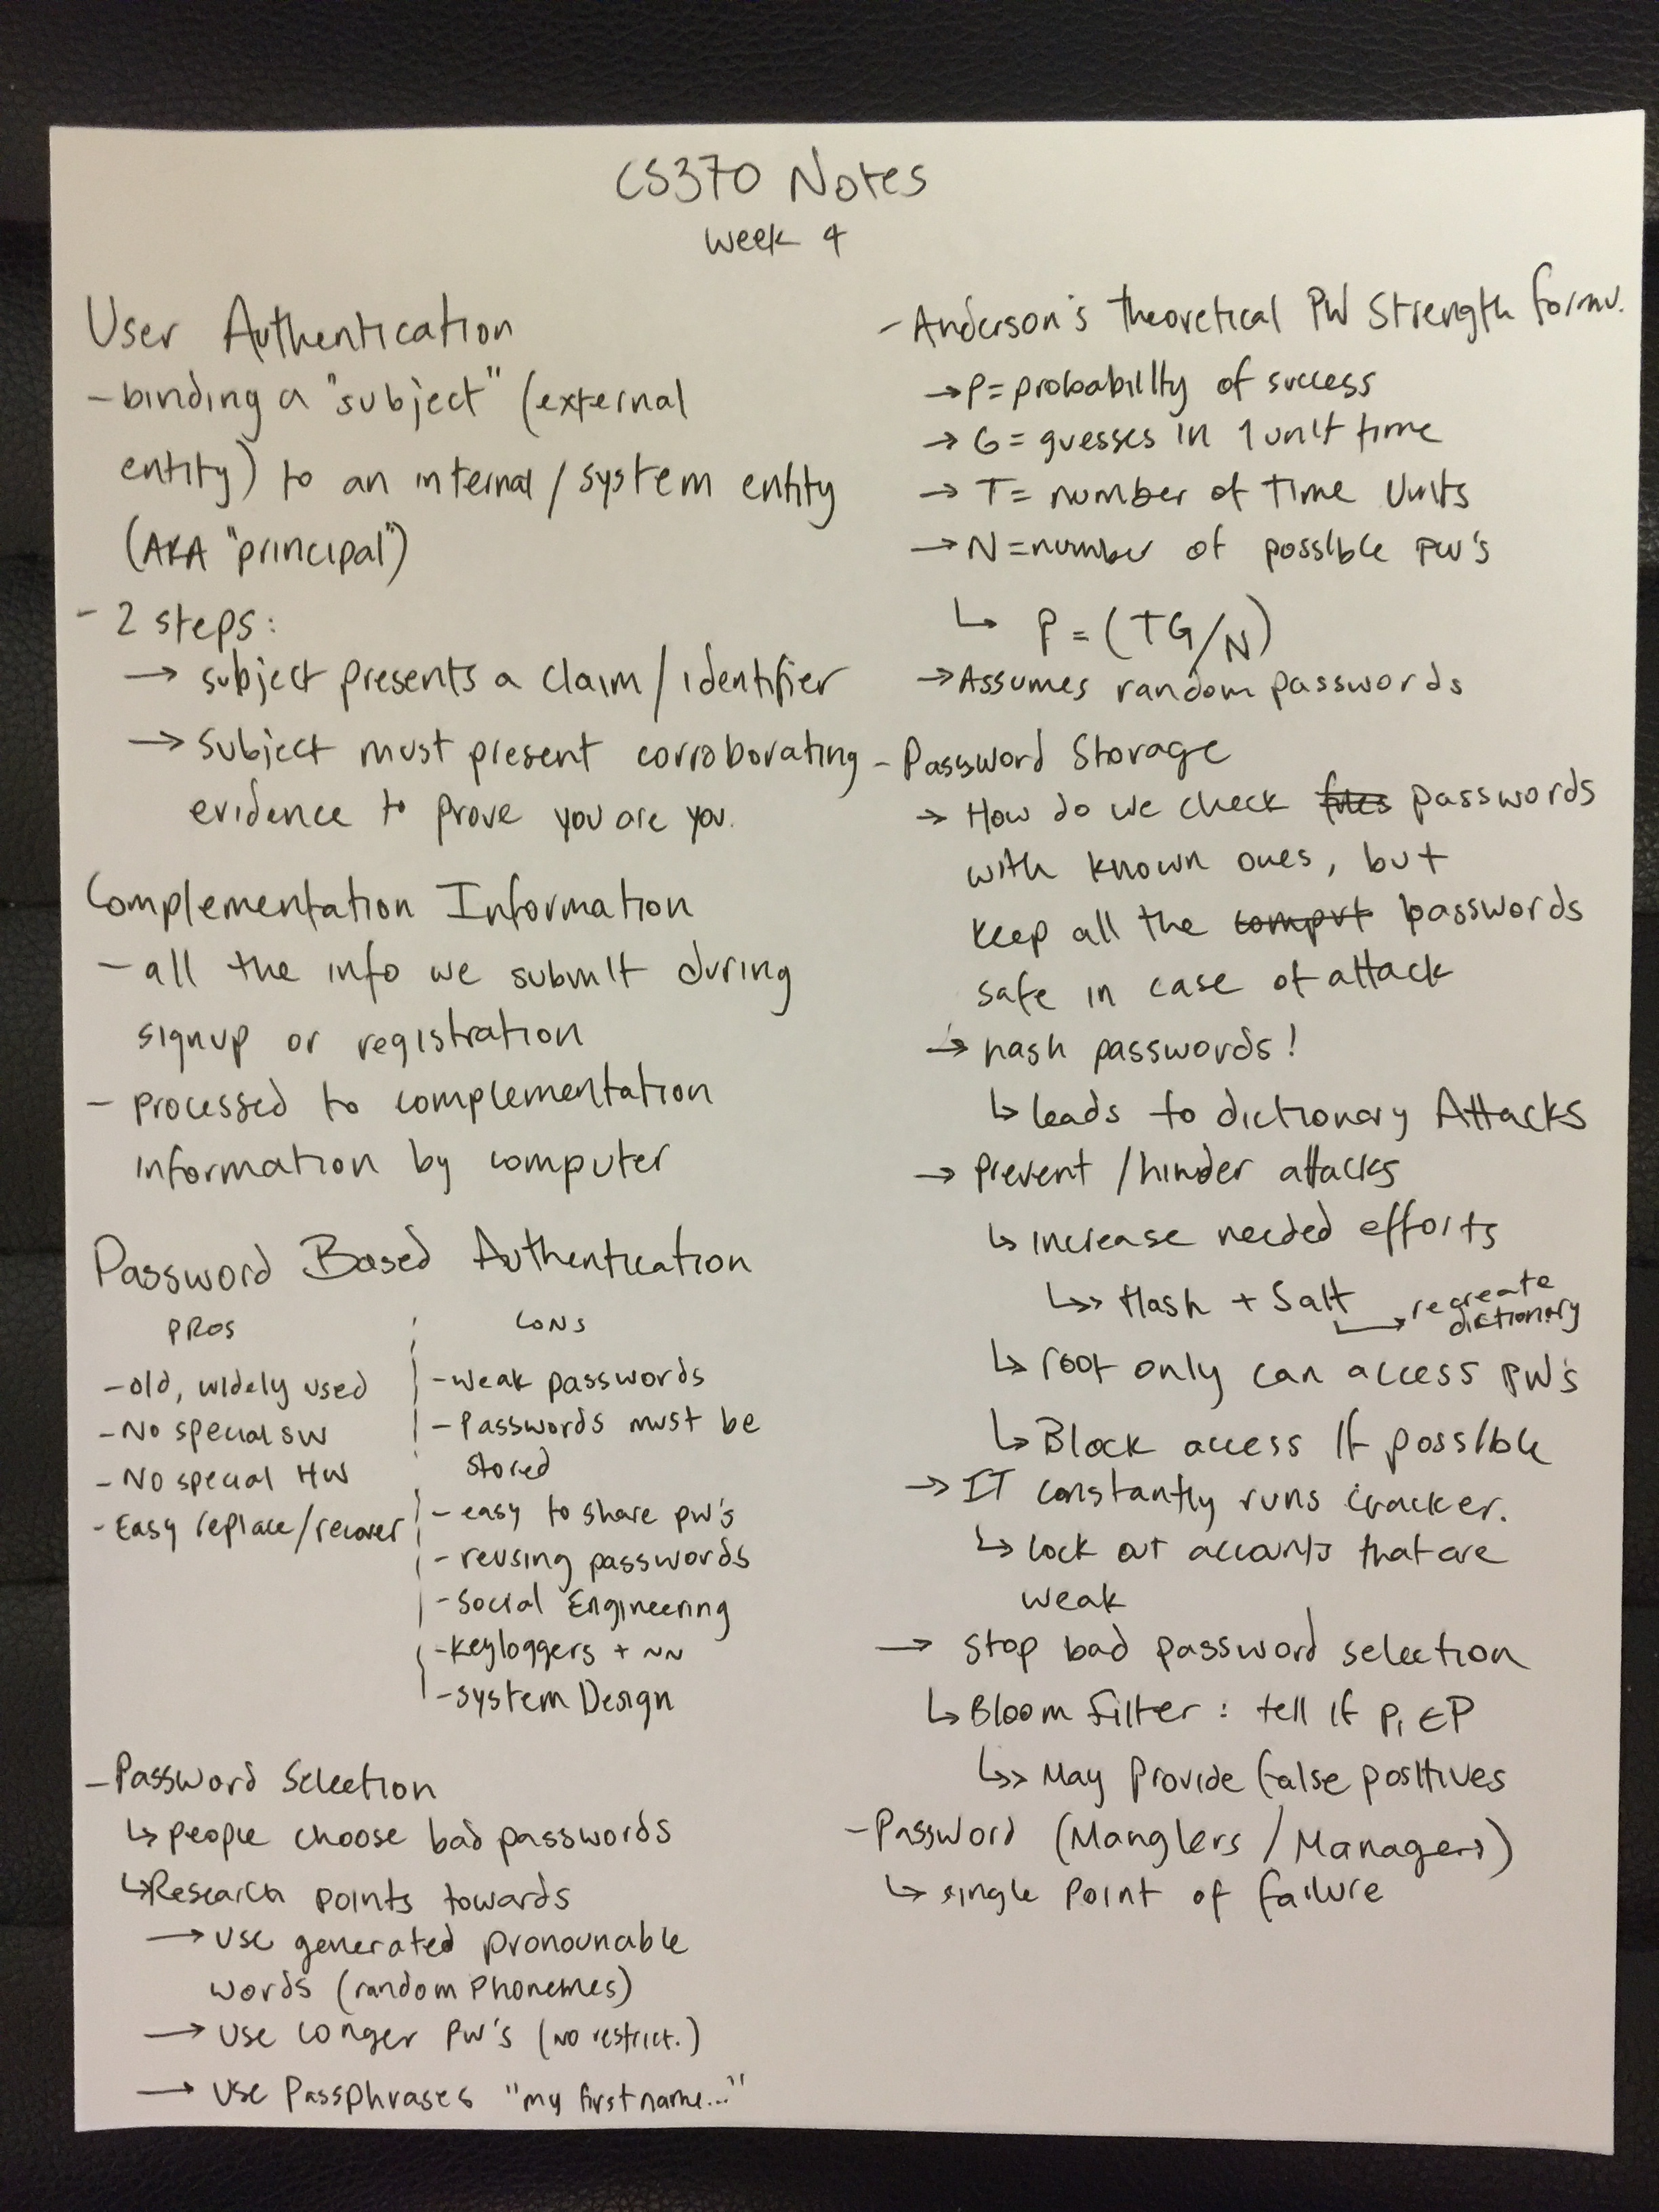 CS370 Notes
Week 4
User Authentication
- binding a "subject" (external
entity) to an internal/system entity
(AKA "principal")
- 2 steps:
→ subject presents a claim/identifier
→ Subject must present corroborating
evidence to prove you are you.
Complementation Information
- all the info we submit during
signup or registration
- processed to complementation
information by computer
Password Based Authentication
PROS
- old, widely used
- No special SW
- No special HW
- Easy replace/recover
CONS
- weak passwords
- Passwords must be
stored
- easy to share pw's
- reusing passwords
- Social Engineering
- Keyloggers +
- System Design
- Password Selection
↳ people choose bad passwords
↳ Research points towards
→ use generated pronounable
words (random phonemes)
→ use longer PW's (no restrict.)
→ use Passphrases "my first name..."
- Anderson's theoretical PW Strength formu.
→ P = probability of success
→ G = guesses in 1 unit time
→ T = number of time units
→ N = number of possible PW's
↳ P = (TG/N)
→ Assumes random passwords
- Password Storage
→ How do we check passwords
with known ones, but
keep all the passwords
safe in case of attack
→ hash passwords!
↳ leads to dictionary Attacks
→ Prevent/hinder attacks
↳ increase needed efforts
↳» Hash + Salt → recreate
dictionary
↳ root only can access PW's
↳ Block access if possible
→ IT constantly runs cracker.
↳ lock out accounts that are
weak
→ Stop bad password selection
↳ Bloom Filter: tell if Pi ∈ P
↳» May provide false positives
- Password (Manglers/Managers)
↳ single point of failure